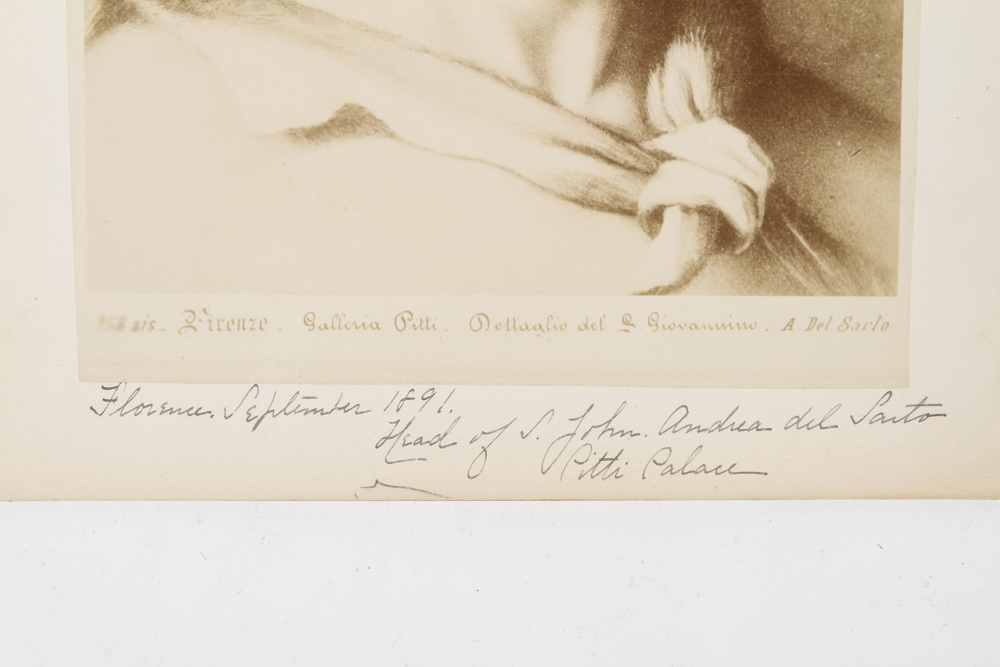 is - Firenze - Galleria Pitti - Dettaglio del S. Giovannino. A. Del Sarto
Florence, September 1891.
Head of S. John. Andrea del Sarto
Pitti Palace